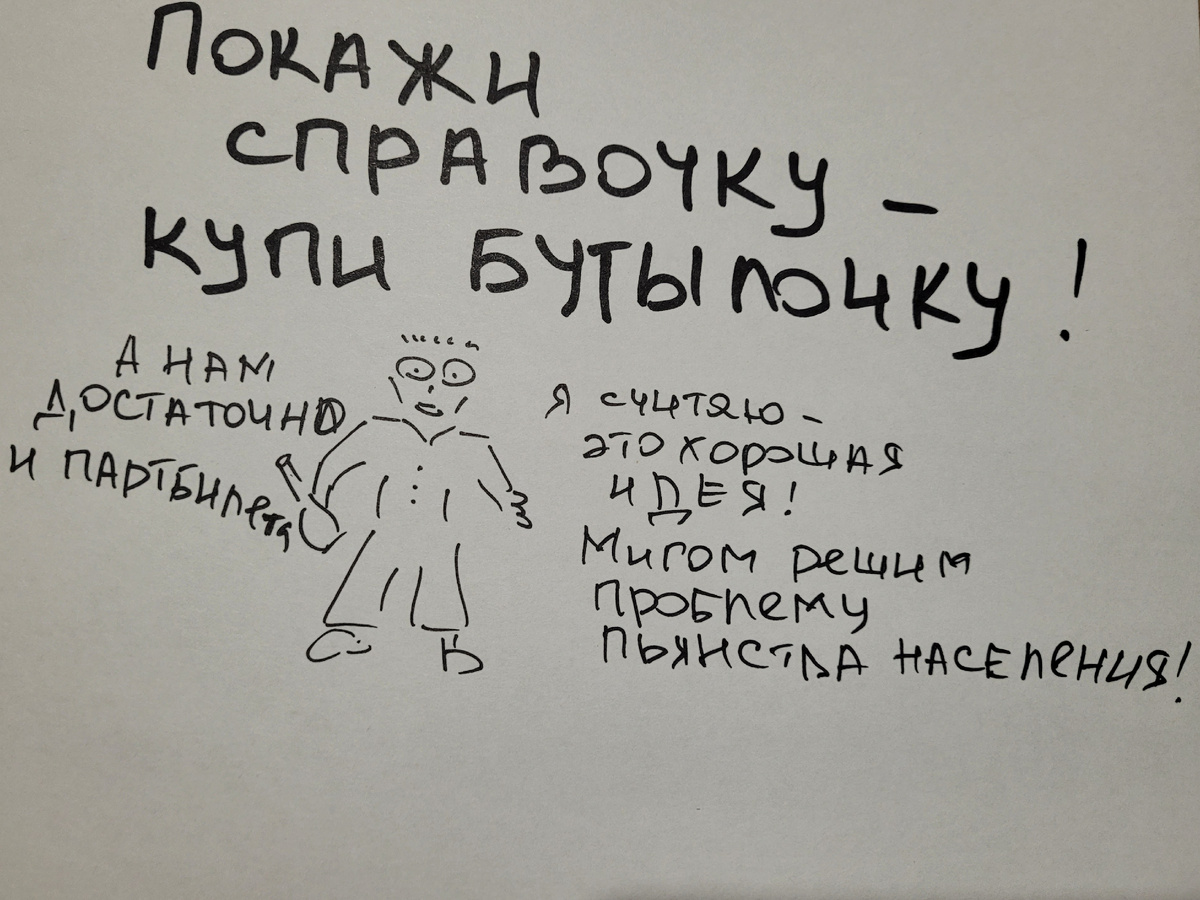 ПОКАЖИ
СПРАВОЧКУ –
КУПИ БУТЫЛОЧКУ!
А НАМ
ДОСТАТОЧНО
И ПАРТБИЛЕТА
Я СЧИТАЮ –
ЭТО ХОРОШАЯ
ИДЕЯ!
МИГОМ РЕШИМ
ПРОБЛЕМУ
ПЬЯНСТВА НАСЕЛЕНИЯ!